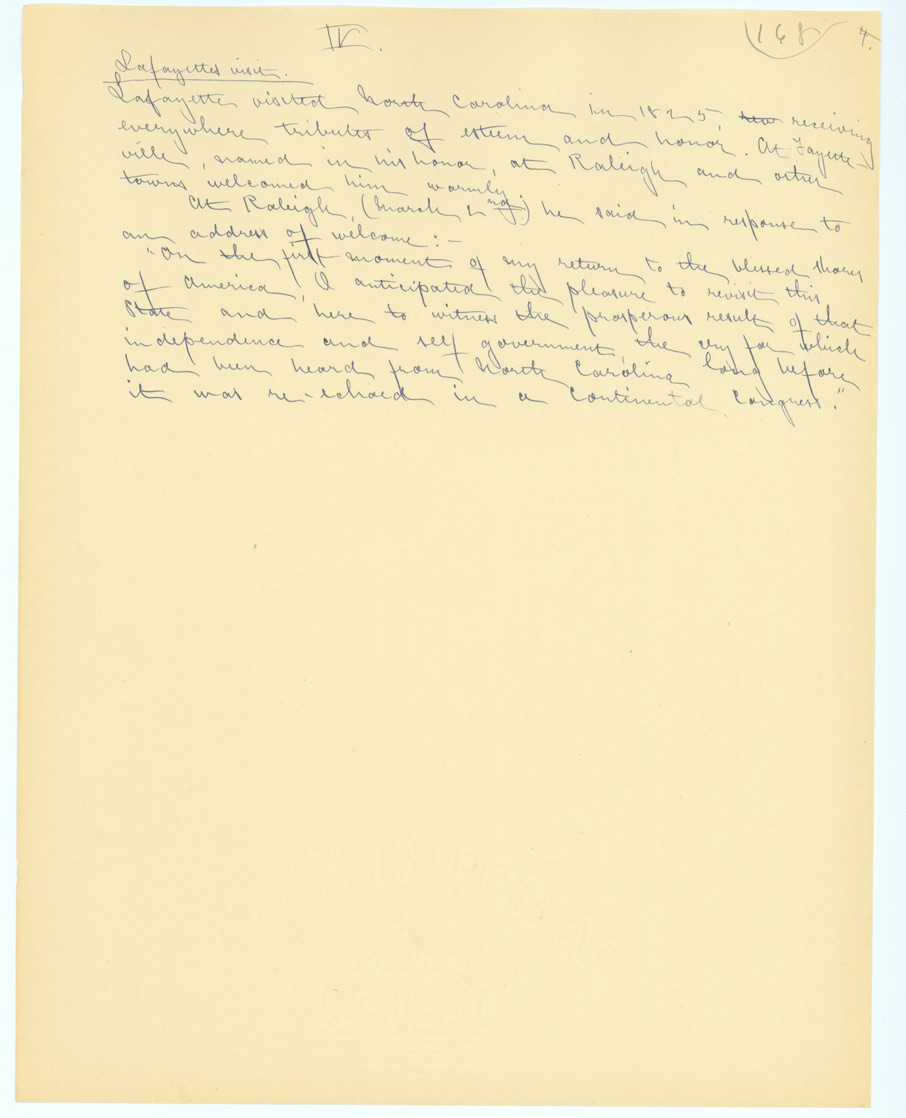 IV.
168 4.
Lafayettes visit.
Lafayette visited North Carolina in 1825, receiving
everywhere tributes of esteem and honor. At Fayette-
ville, named in his honor, at Raleigh and other
towns welcomed him warmly.
At Raleigh, (March 2nd) he said in response to
an address of welcome:-
"On the first moment of my return to the blessed shores
of America, I anticipated the pleasure to revisit this
State and here to witness the prosperous result of that
independence and self government, the cry for which
had been heard from North Carolina long before
it was re-echoed in a Continental Congress."